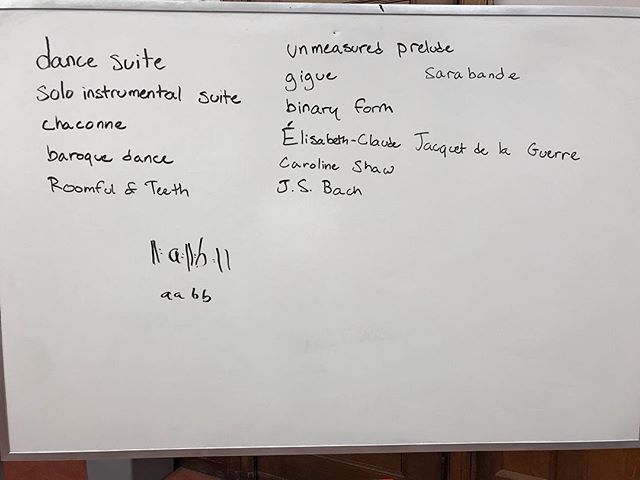 dance suite
Solo instrumental suite
chaconne
baroque dance
Roomful & Teeth
unmeasured prelude
gigue sarabande
binary form
Élisabeth-Claude Jacquet de la Guerre
Caroline Shaw
J.S. Bach
||: a :||: b :||
aa bb